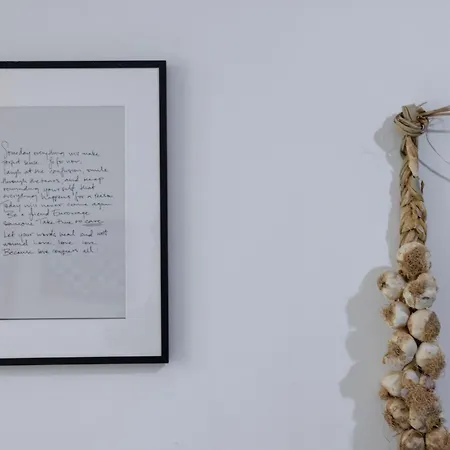 Someday everything will make
perfect sense. So for now,
laugh at the confusion, smile
through the tears and keep
reminding yourself that
everything happens for a reason
Today will never come again
Be a friend Encourage
someone Take time to care
Let your words heal and not
wound Love, love, love
Because love conquers all